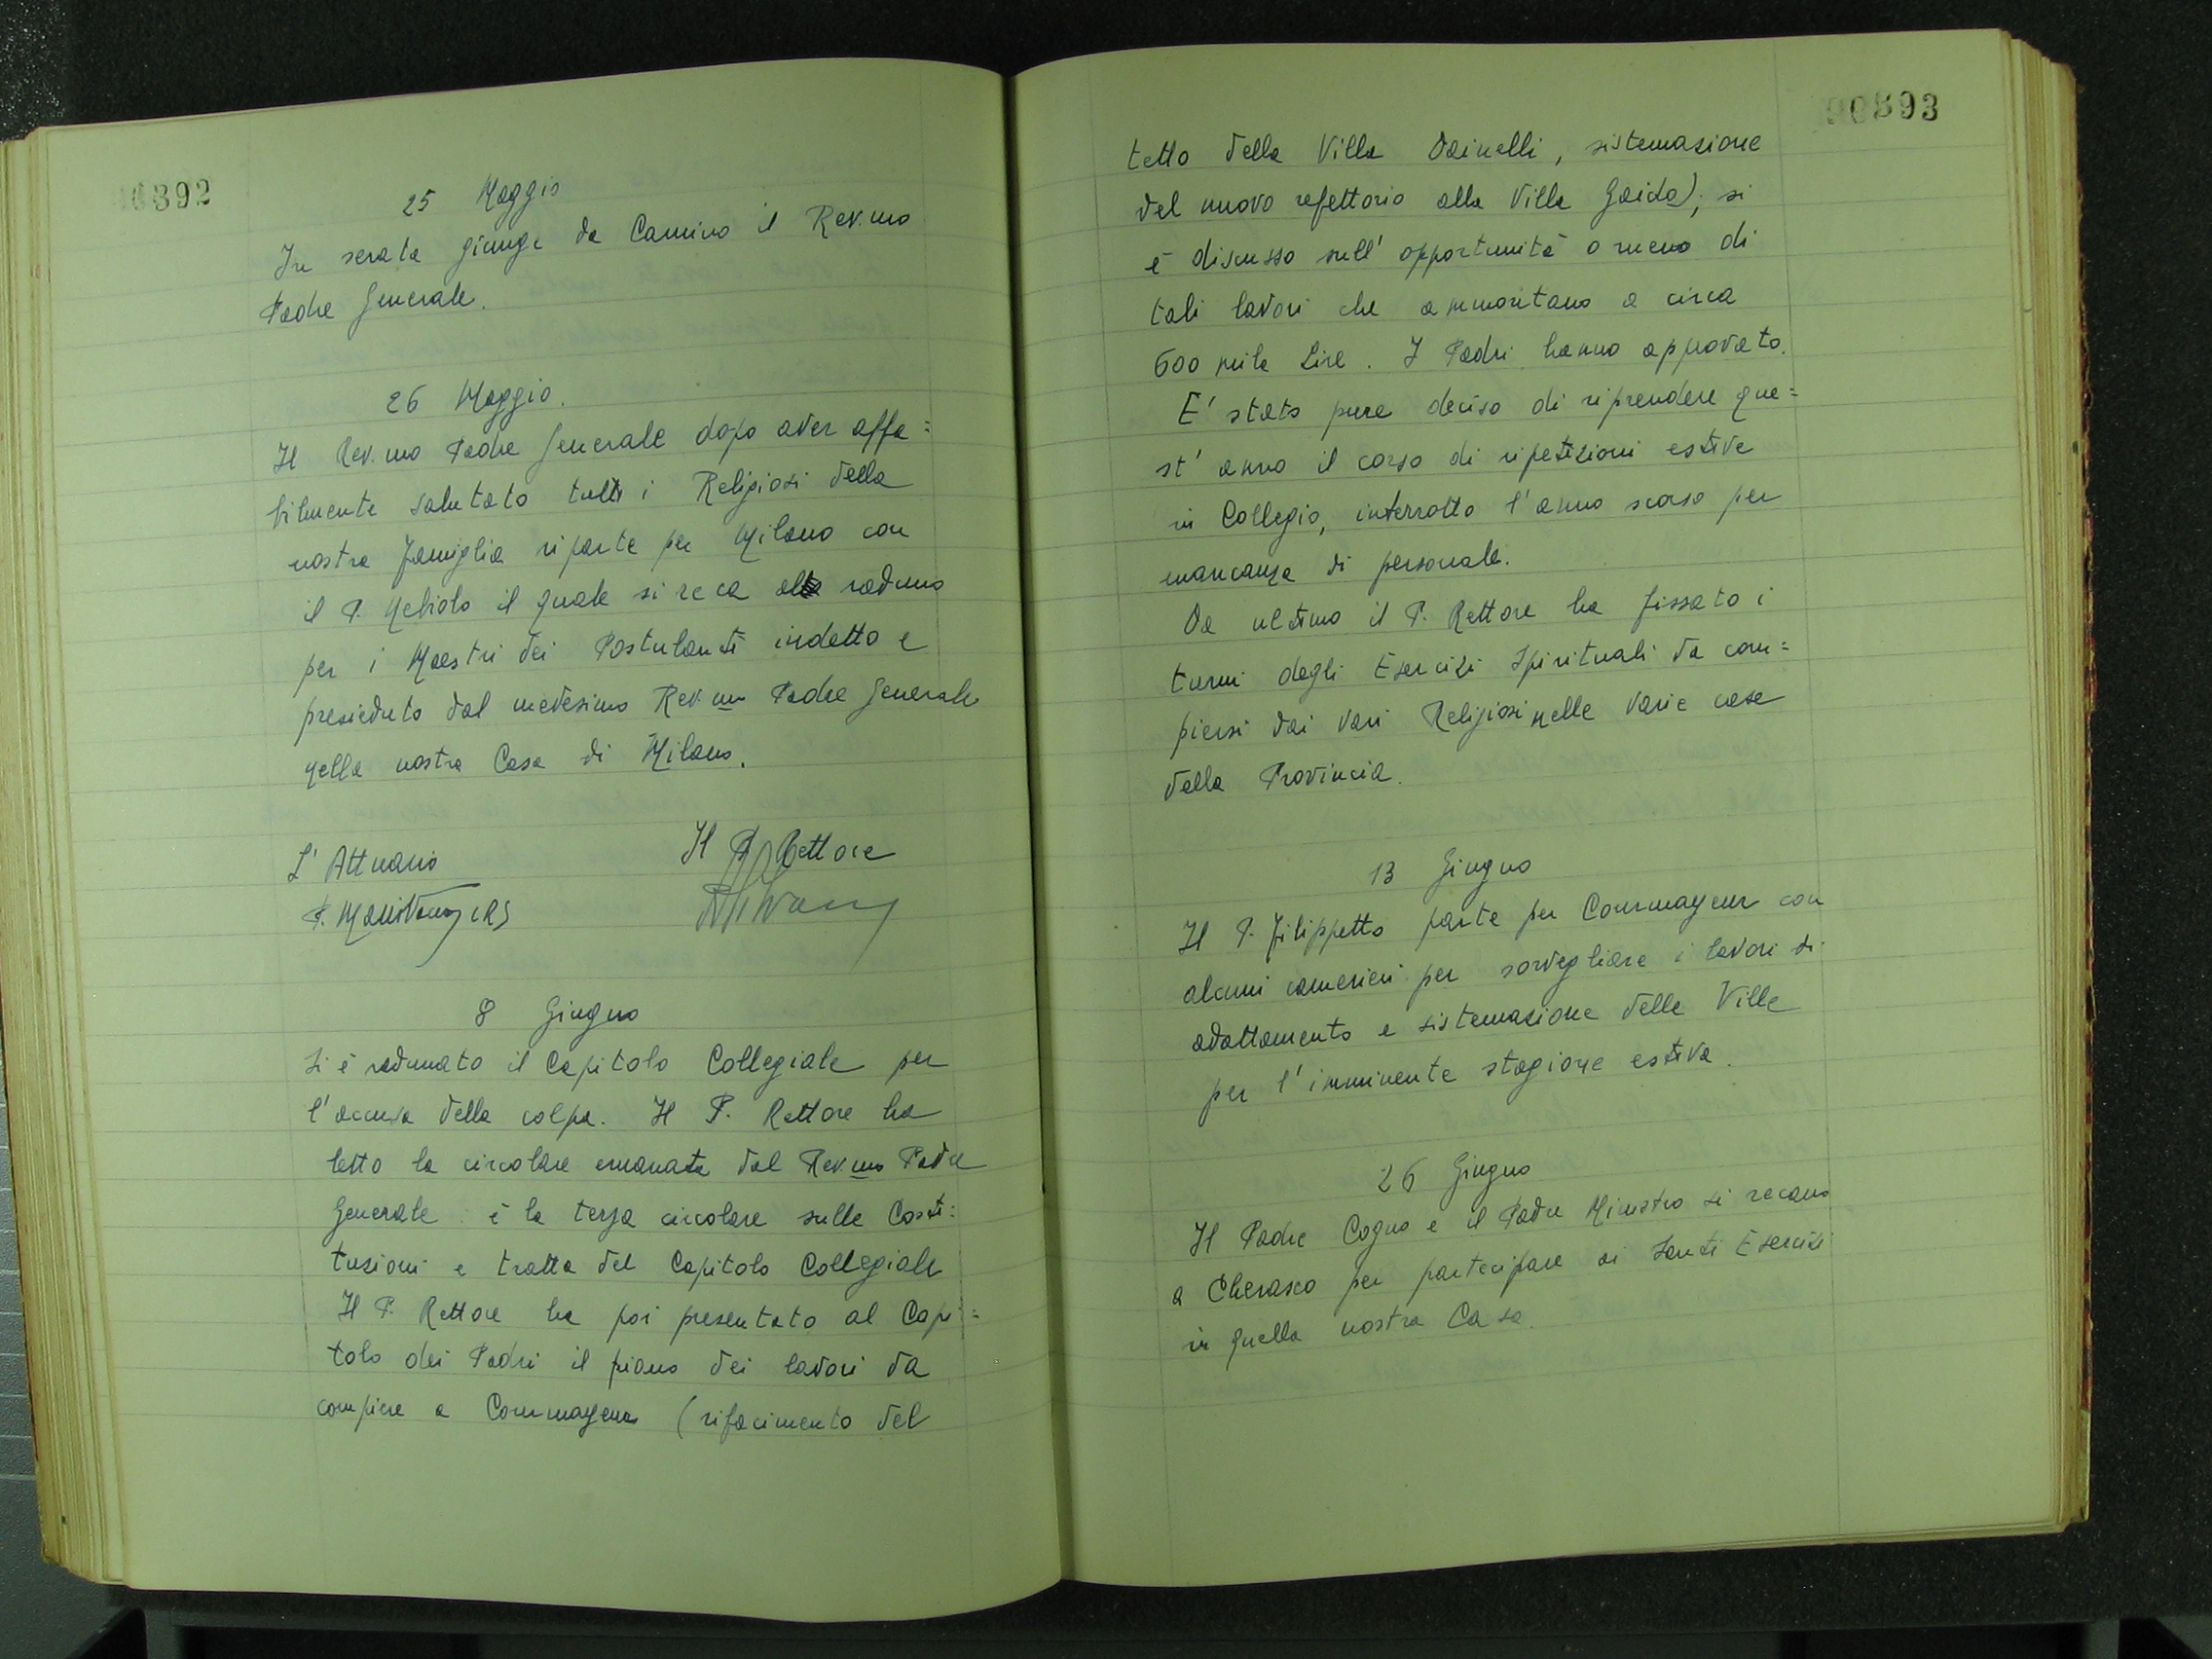 392
25 Maggio
In serata giunge da Camino il Rev.mo
Padre Generale.
26 Maggio.
Il Rev.mo Padre Generale dopo aver affa=
bilmente salutato tutti i Religiosi della
nostra famiglia riparte per Milano con
il P. Mebiolo il quale si reca al raduno
per i Maestri dei Postulanti indetto e
presieduto dal medesimo Rev.mo Padre Generale
nella nostra Casa di Milano.
L' Attuario
Il P. Rettore
P.
8 Giugno
Si è radunato il Capitolo Collegiale per
l'accusa della colpa. Il P. Rettore ha
letto la circolare emanata dal Rev.mo Padre
Generale : è la terza circolare sulle Costi=
tuzioni e tratta del Capitolo Collegiale
Il P. Rettore ha poi presentato al Capi=
tolo dei Padri il piano dei lavori da
compiere a Courmayeur (rifacimento del
00893
tetto della Villa Dainelli, sistemazione
del nuovo refettorio alla Villa Gaida); si
è discusso sull' opportunità o meno di
tali lavori che ammontano a circa
600 mila Lire. I Padri hanno approvato.
E' stato pure deciso di riprendere que=
st' anno il corso di ripetizioni estive
in Collegio, interrotto l'anno scorso per
mancanza di personale.
Da ultimo il P. Rettore ha fissato i
turni degli Esercizi Spirituali da com=
piersi dai vari Religiosi nelle varie case
della Provincia.
13 Giugno
Il P. Filippetto parte per Courmayeur con
alcuni camerieri per sorvegliare i lavori di
adattamento e sistemazione delle Ville
per l'imminente stagione estiva.
26 Giugno
Il Padre Cogno e il Padre Ministro si recano
a Cherasco per partecipare ai Santi Esercizi
in quella nostra Casa.